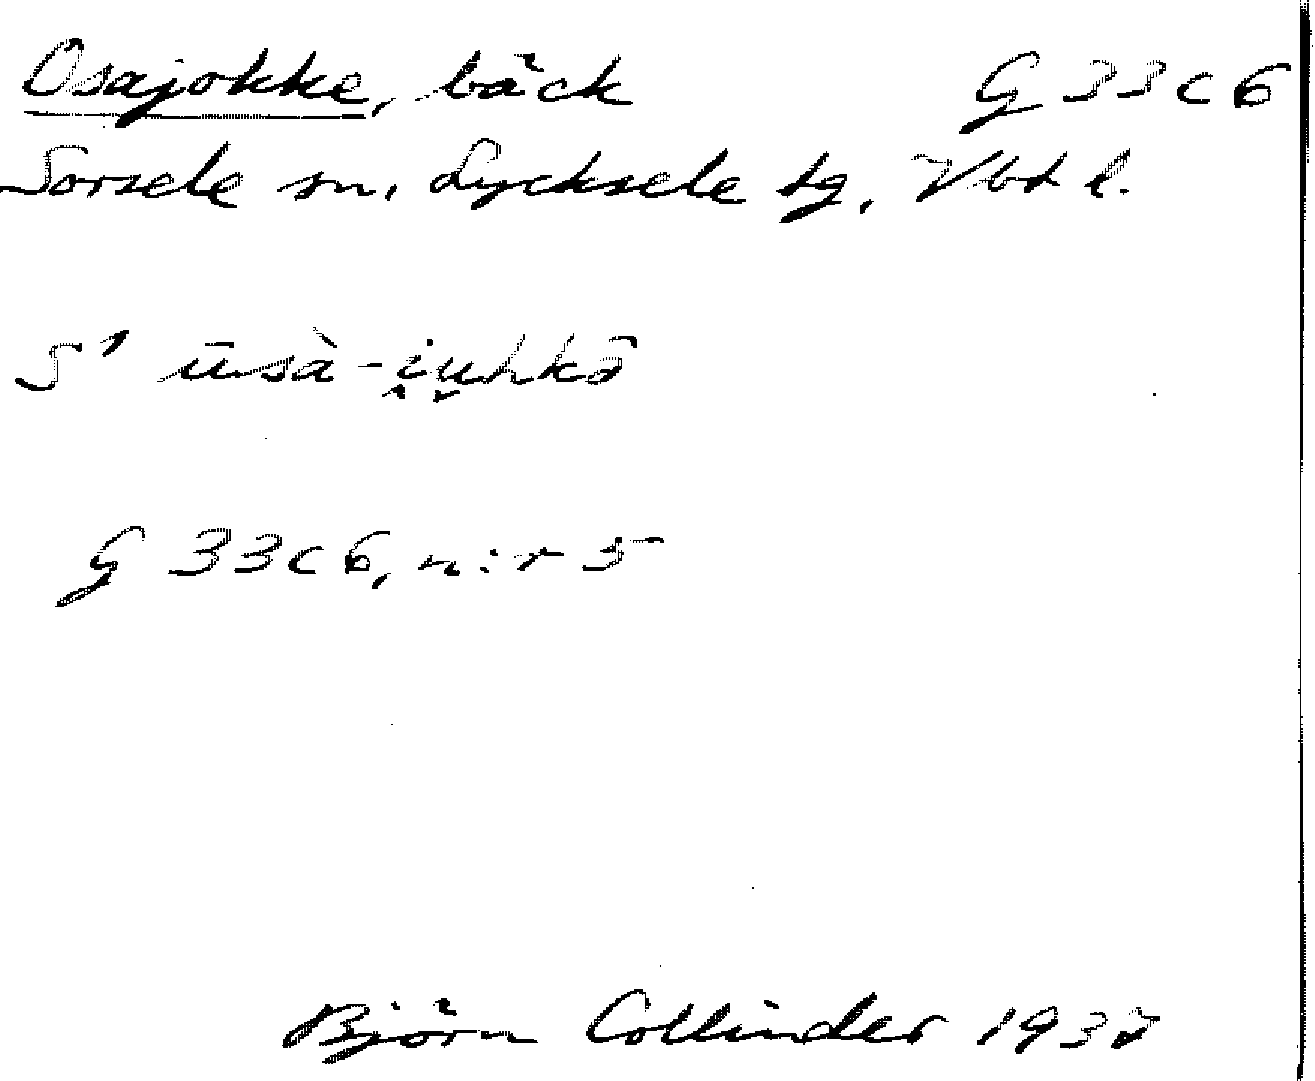 Osajokke, bäck G 33 c 6
Sorsele sn, Lycksele tg, Vbt l.
S¹ ūsà-i̭u̬hkō
G 33 c 6, n:r 5
Björn Collinder